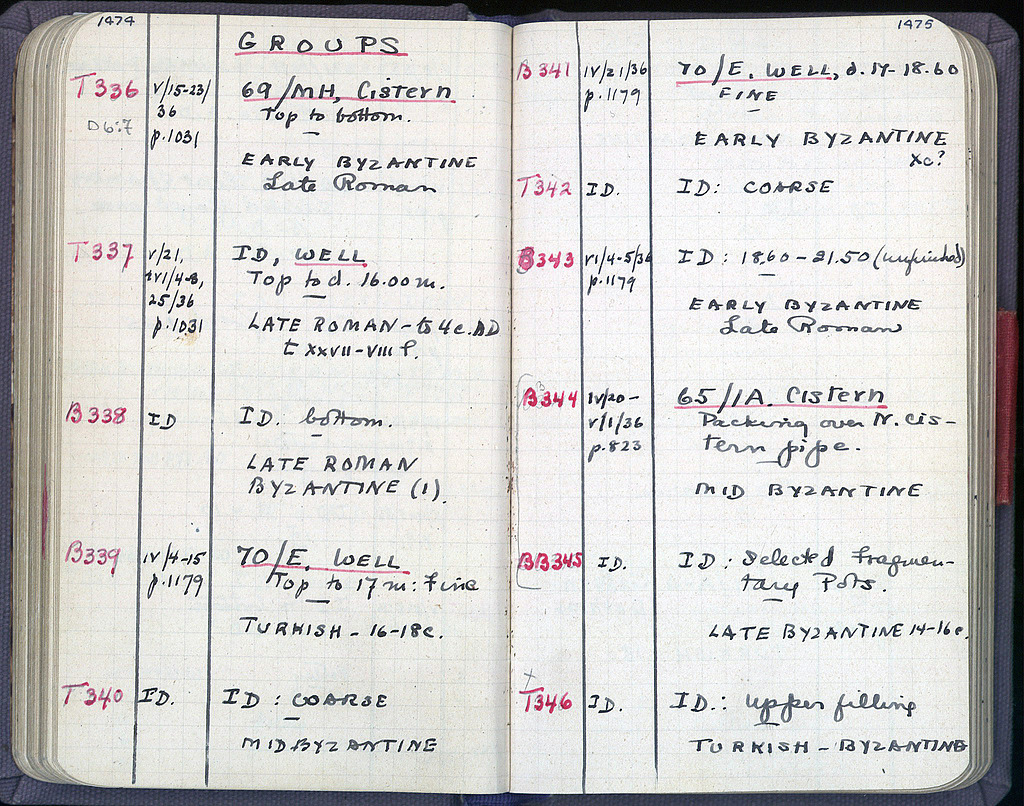 1474
GROUPS
T336 V/15-23/ 69/MH, Cistern
36 Top to bottom.
D6:7
p.1031
EARLY BYZANTINE
Late Roman
T337 V/21, ID, WELL
VI/4-8, Top to d. 16.00 m.
25/36
p.1031 LATE ROMAN - to 4c. AD
t XXVII-VIII f.
B338 ID ID. bottom.
LATE ROMAN
BYZANTINE (1)
B339 IV/4-15 70/E, WELL
p.1179 Top to 17 m: Fine
TURKISH - 16-18c.
T340 ID. ID: COARSE
MIDBYZANTINE
1475
B341 IV/21/36 70/E, WELL, d. 17-18.60
p.1179 FINE
EARLY BYZANTINE
Xc?
T342 ID. ID: COARSE
B343 VI/4-5/36 ID: 18.60-21.50 (unfinished)
p.1179
EARLY BYZANTINE
Late Roman
B
B344 IV/20- 65/1A. Cistern
V/1/36 Packing over N. cis-
p.823 tern pipe.
MID BYZANTINE
BB345 ID. ID: Selected Fragmen-
tary Pots.
LATE BYZANTINE 14-16c.
T346 ID. ID.: upper filling
TURKISH - BYZANTINE